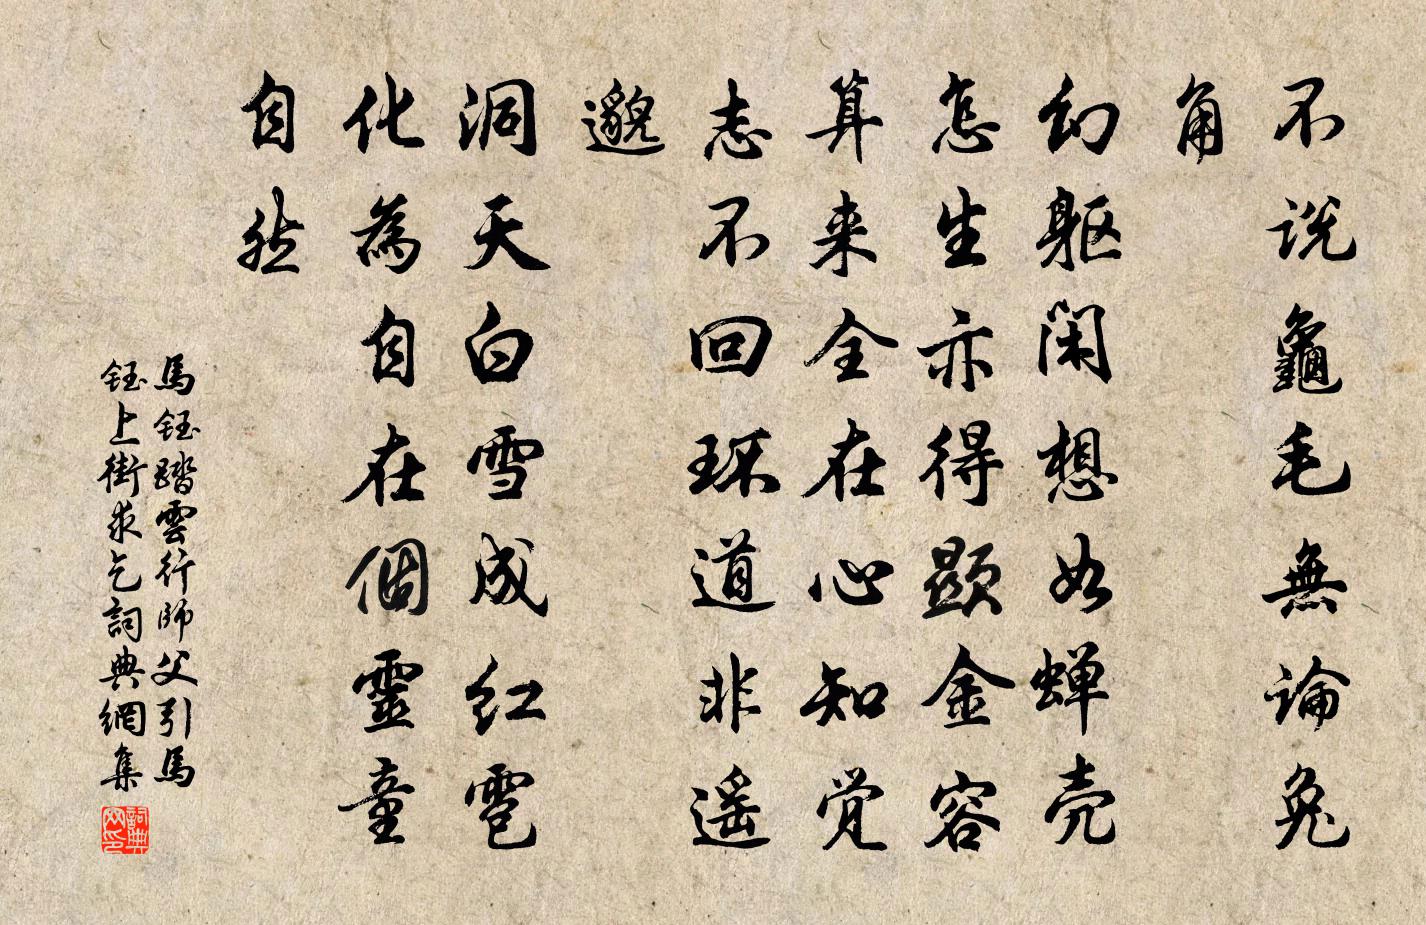 不说龜毛無論兔
角
幻躯闲想如蝉壳
怎生亦得顯金容
算来全在心知覚
志不回环道非遥
邈
洞天白雪成红雹
化為自在個靈童
自然
馬鈺踏雲行師父引馬
鈺上街求乞詞典網集
詞典網印